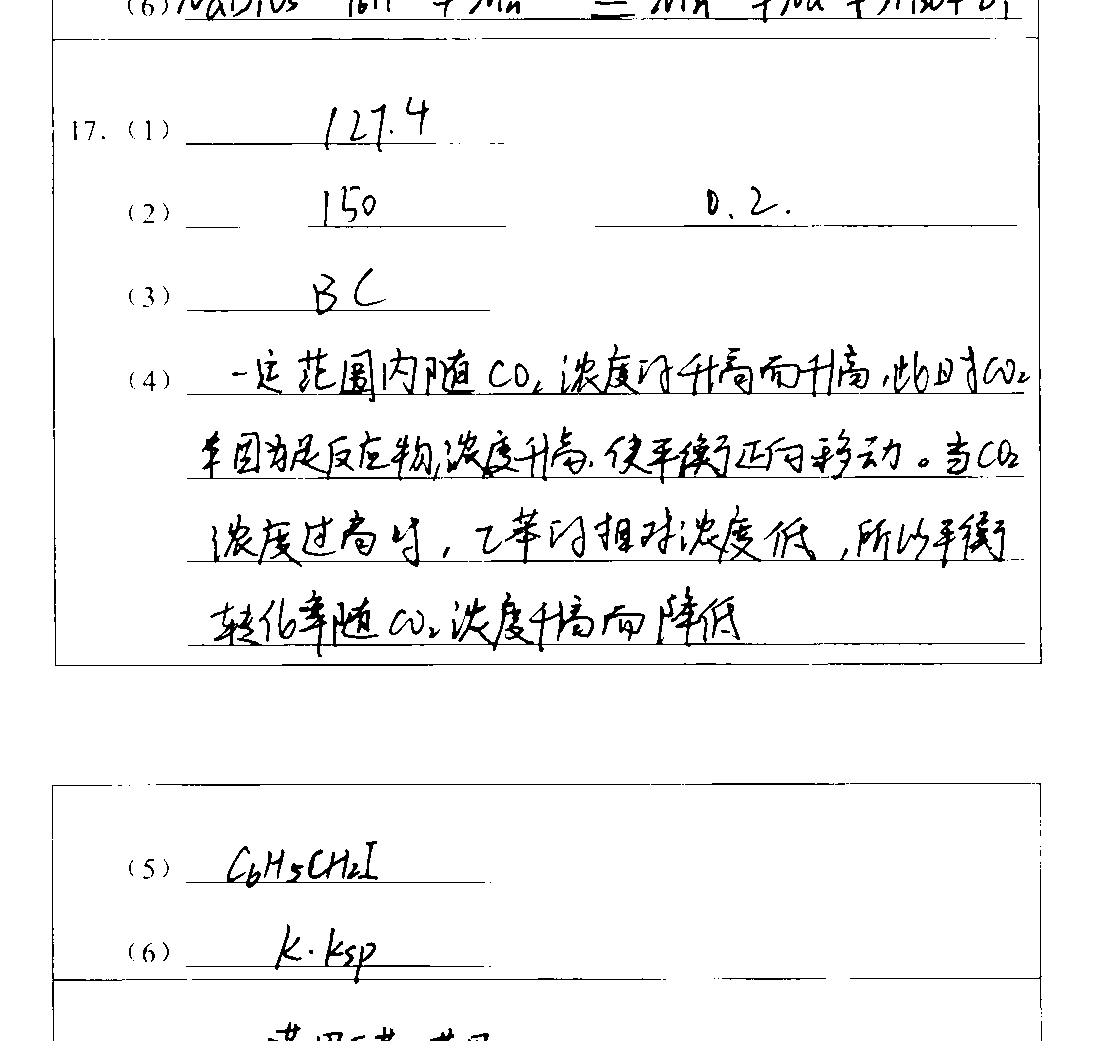 (6) NaBiO₃
17. (1) 127.4
(2) 150 0.2.
(3) BC
(4) 一定范围内随CO₂浓度的升高而升高,此时CO₂
因为是反应物,浓度升高,使平衡正向移动。当CO₂
浓度过高时,乙苯的相对浓度低,所以平衡
转化率随CO₂浓度升高而降低
(5) C₆H₅CH₂I
(6) K·Ksp